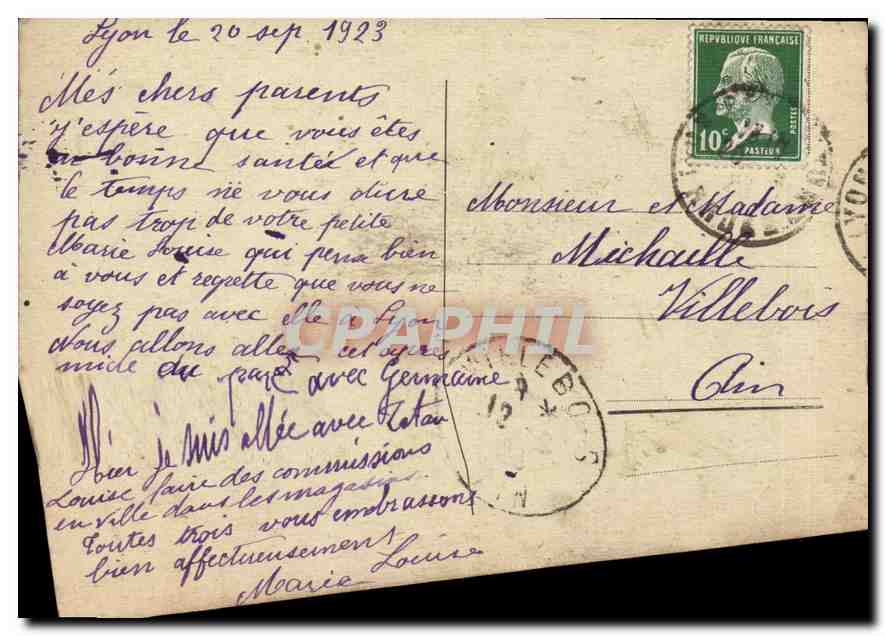 Lyon le 20 sep. 1923
Mes chers parents
j'espère que vous êtes
en bonne santée et que
le temps ne vous dure
pas trop de votre petite
Marie Louise qui pense bien
à vous et regrette que vous ne
soyez pas avec elle à Lyon
Nous allons aller cet après
midi au parc avec Germaine
Hier je suis allée avec Tatan
Louise faire des commissions
en ville dans les magasins
Toutes trois vous embrassons
bien affectueusement
Marie Louise
REPVBLIQUE FRANÇAISE
10c
POSTES
PASTEUR
Monsieur et Madame
Michaille
Villebois
Ain
VILLEBOIS
LYON
CPAPHIL